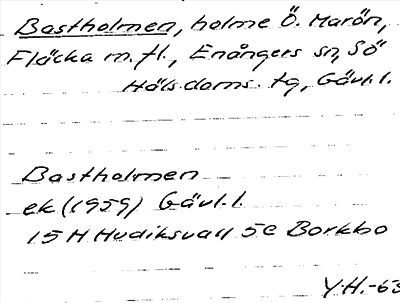 Bastholmen, holme Ö. Marön,
Fläcka m.fl., Enångers sn, Sö
Hälsdoms. tg, Gävl.l.
Bastholmen
ek (1959) Gävl.l.
15 H Hudiksvall 5e Borkbo
Y.H.-63